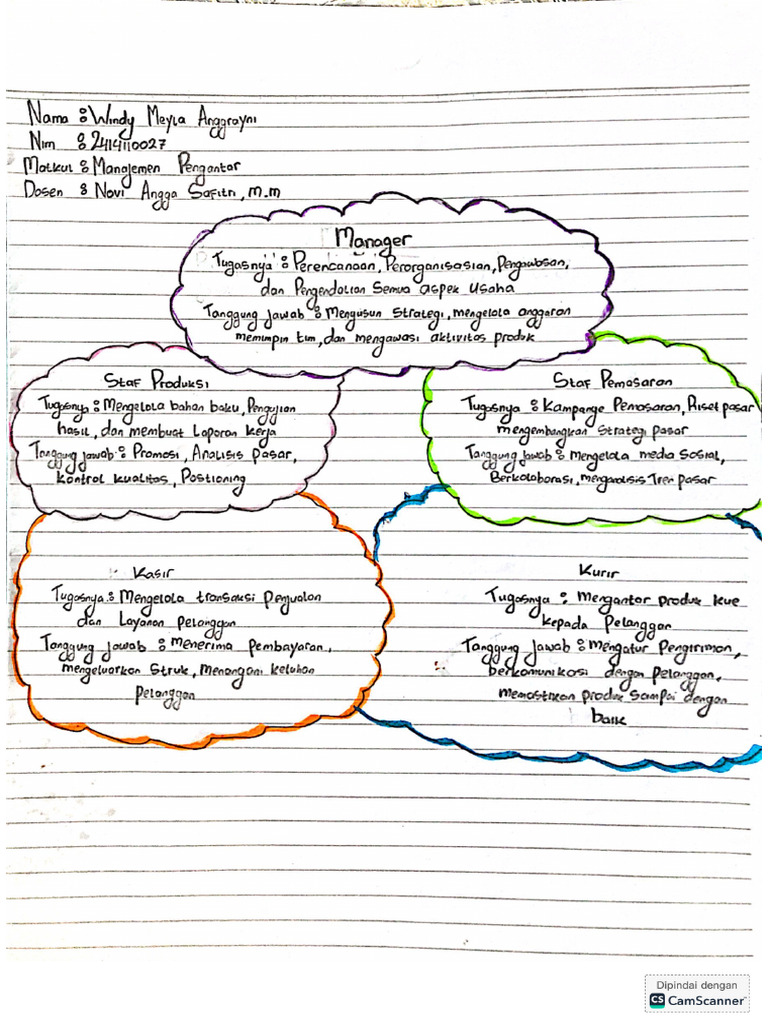 Nama : Windy Meyla Anggrayni
Nim : 2414110027
Matkul : Manajemen Pengantar
Dosen : Novi Angga Safitri, M.M
Manager
Tugasnya : Perencanaan, Perorganisasian, Pengawasan,
dan Pengendalian Semua aspek Usaha
Tanggung jawab : Mengusun Strategi, mengelola anggaran
memimpin tim, dan mengawasi aktivitas produk
Staf Produksi
Tugasnya : Mengelola bahan baku, Pengujian
hasil, dan membuat Laporan Kerja
Tanggung jawab : Promosi, Analisis Pasar,
kontrol kualitas, Postioning
Staf Pemasaran
Tugasnya : Kampange Pemasaran, Riset pasar
mengembangkan Strategi pasar
Tanggung jawab : Mengelola media Sosial,
Berkolaborasi, menganalisis Tren pasar
Kasir
Tugasnya : Mengelola transaksi Penjualan
dan Layanan Pelanggan
Tanggung jawab : Menerima Pembayaran,
mengeluarkan Struk, Menangani keluhan
Pelanggan
Kurir
Tugasnya : Mengantar produk kue
kepada Pelanggan
Tanggung jawab : Mengatur Pengiriman,
berkomunikasi dengan pelanggan,
memastikan produk Sampai dengan
baik
Dipindai dengan
CS CamScanner